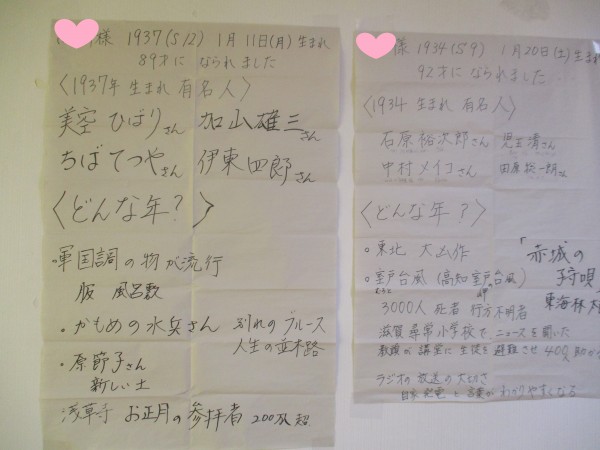 様 1937(S12) 1月11日(月)生まれ
89才になられました
〈1937年生まれ有名人〉
美空ひばりさん 加山雄三さん
ちばてつやさん 伊東四郎さん
〈どんな年?〉
・軍国調の物が流行
服 風呂敷
・かもめの水兵さん 別れのブルース
人生の並木路
・原節子さん
新しい土
浅草寺 お正月の参拝者 200万人超
様 1934(S9) 1月20日(土)生まれ
92才になられました
〈1934生まれ有名人〉
石原裕次郎さん 児玉清さん
中村メイコさん 田原総一朗さん
〈どんな年?〉
・東北 大凶作 「赤城の
子守唄
・室戸台風(高知室戸岬台風)
むろと
東海林太
3000人 死者 行方不明者
滋賀尋常小学校で、ニュースを聞いた
教頭が講堂に生徒を避難させ400人助か
ラジオの放送の大切さ
自家発電と言葉がわかりやすくなる